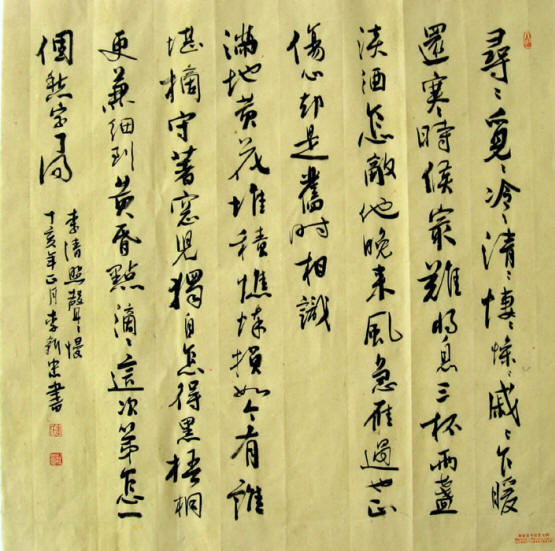 尋〻覓〻冷〻清〻悽〻慘〻戚〻乍暖
還寒時候最難將息三杯兩盞
淡酒怎敵他晚來風急雁過也正
傷心却是舊時相識
滿地黃花堆積憔悴損如今有誰
堪摘守著窗兒獨自怎得黑梧桐
更兼細到黃昏點滴〻這次第怎一
個愁字了得
李清照聲〻慢
丁亥年正月李書